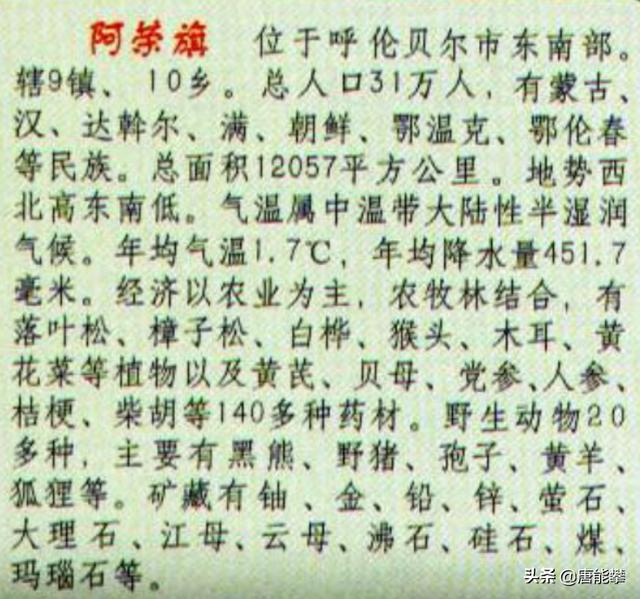 阿荣旗 位于呼伦贝尔市东南部。
辖9镇、10乡。总人口31万人，有蒙古、
汉、达斡尔、满、朝鲜、鄂温克、鄂伦春
等民族。总面积12057平方公里。地势西
北高东南低。气温属中温带大陆性半湿润
气候。年均气温1.7℃，年均降水量451.7
毫米。经济以农业为主，农牧林结合，有
落叶松、樟子松、白桦、猴头、木耳、黄
花菜等植物以及黄芪、贝母、党参、人参、
桔梗、柴胡等140多种药材。野生动物20
多种，主要有黑熊、野猪、狍子、黄羊、
狐狸等。矿藏有铀、金、铅、锌、萤石、
大理石、江母、云母、沸石、硅石、煤、
玛瑙石等。
头条 @唐能攀